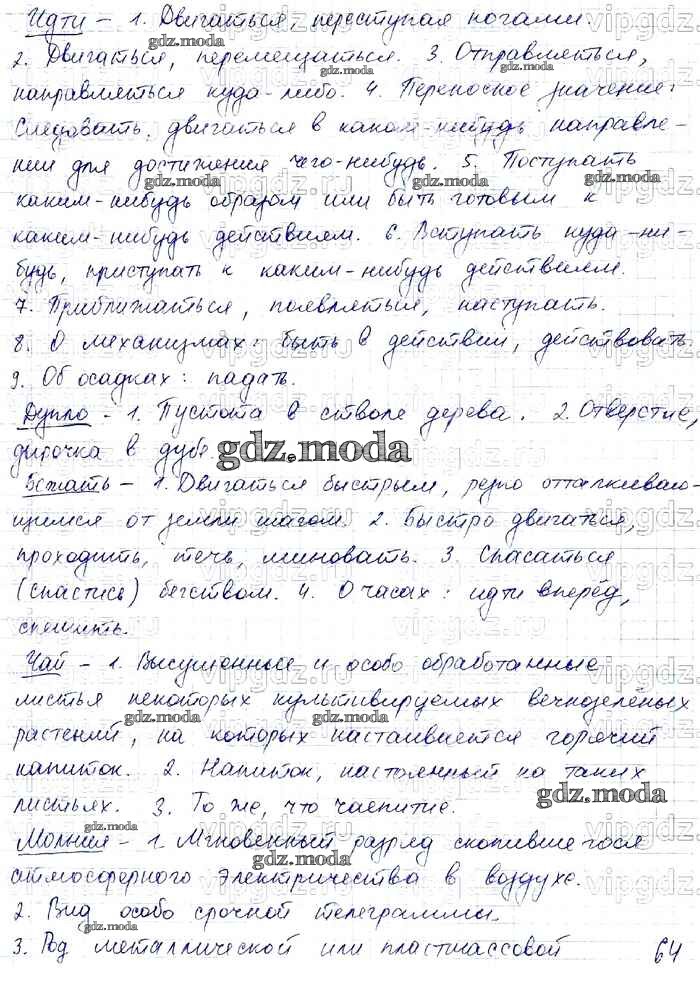 Идти – 1. Двигаться, переступая ногами
2. Двигаться, перемещаться. 3. Отправляться,
направляться куда-либо. 4. Переносное значение:
следовать, двигаться в каком-нибудь направле-
нии для достижения чего-нибудь. 5. Поступать
каким-нибудь образом или быть готовым к
каким-нибудь действием. 6. Вступать куда-ни-
будь, приступать к каким-нибудь действием.
7. Приближаться, появляться, наступать.
8. О механизмах: быть в действии, действовать.
9. Об осадках: падать.
Дупло – 1. Пустота в стволе дерева. 2. Отверстие,
дырочка в дубе.
gdz.moda
Бежать – 1. Двигаться быстрым, резко отталкиваю-
щимся от земли шагом. 2. Быстро двигаться,
проходить, течь, миновать. 3. Спасаться
(спастись) бегством. 4. О часах: идти вперёд,
спешить.
Чай – 1. Высушенные и особо обработанные
листья некоторых культивируемых вечнозелёных
растений, на которых настаивается горячий
напиток. 2. Напиток, настоянный на таких
листьях. 3. То же, что чаепитие.
Молния – 1. Мгновенный разряд скопившегося
атмосферного электричества в воздухе.
2. Вид особо срочной телеграммы.
3. Род металлической или пластмассовой
64